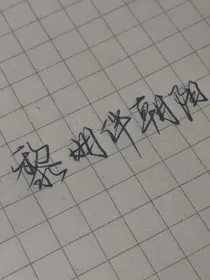 黎明伴朝阳